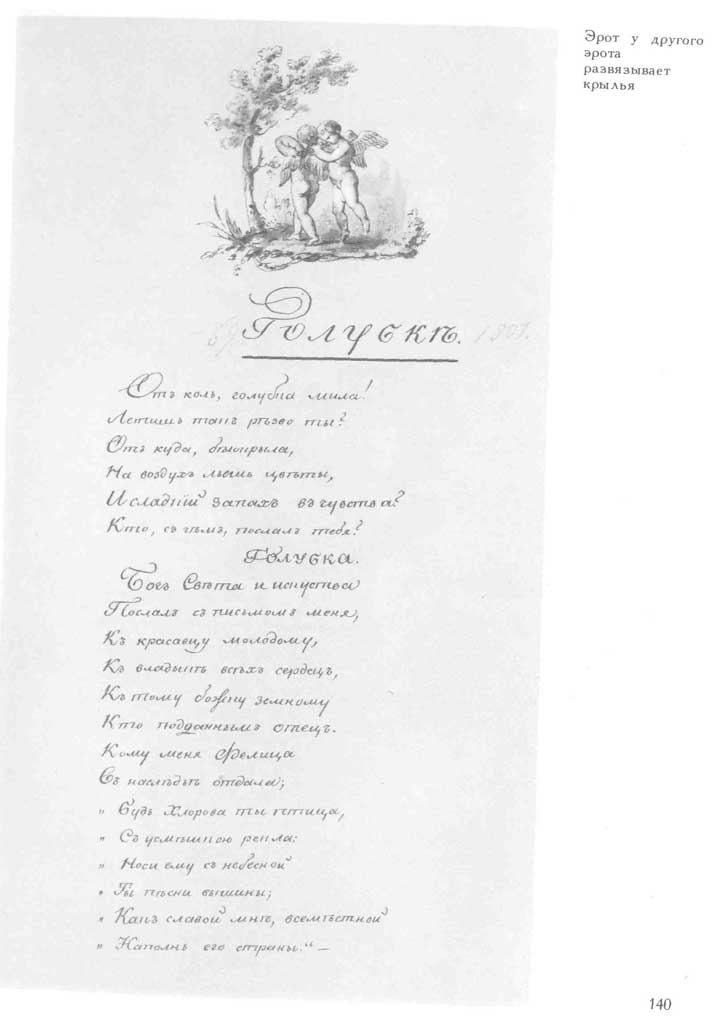 Эрот у другого
эрота
развязывает
крылья
Голубкѣ. 1801.
Отъ коль, голубка мила!
Летишь такъ рѣзво ты?
Отъ куда, бѣлокрыла,
На воздухъ льешь цвѣты,
И сладкій запахъ въ чувства?
Кто, съ чѣмъ, послалъ тебя?
Голубка.
Богъ Свѣта и искуства
Послалъ съ письмомъ меня,
Къ красавцу молодому,
Къ владыкѣ всѣхъ сердецъ,
Къ тому божку земному
Кто подданнымъ отецъ.
Кому меня Фелица
Въ наслѣдье отдала;
„ Будь Хлорова ты птица,
„ Съ усмѣшкою рекла:
„ Носи ему съ небесной
„ Ты пѣсни вышины;
„ Какъ славой мнѣ, всемѣстной
„ Наполнь его страны.“ —
140